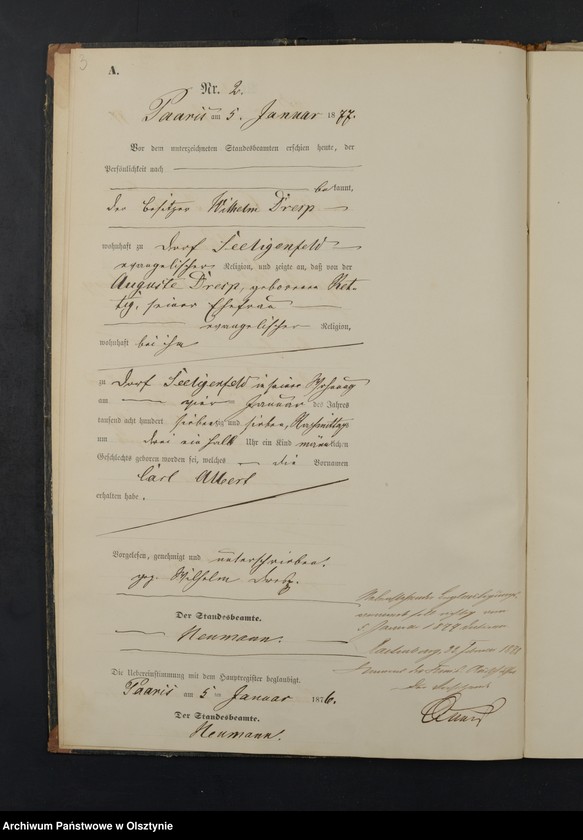 A.
Nr. 2.
Paaris am 5. Januar 1877.
Vor dem unterzeichneten Standesbeamten erschien heute, der
Persönlichkeit nach
bekannt,
der Besitzer Wilhelm Dresp
wohnhaft zu Dorf Seeligenfeld
evangelischer Religion, und zeigte an, daß von der
Auguste Dresp, geborenen Ret-
tig, seiner Ehefrau
evangelischer Religion,
wohnhaft bei ihm
zu Dorf Seeligenfeld in seiner Wohnung
am vier Januar des Jahres
tausend acht hundert siebenzig und sieben, Nachmittags
um drei ein halb Uhr ein Kind männlichen
Geschlechts geboren worden sei, welches die Vornamen
Carl Albert
erhalten habe.
Vorgelesen, genehmigt und unterschrieben.
gez. Wilhelm Dresp.
Der Standesbeamte.
Neumann.
Die Uebereinstimmung mit dem Hauptregister beglaubigt.
Paaris am 5 ten Januar 1876.
Der Standesbeamte.
Neumann.
Archiwum Państwowe w Olsztynie